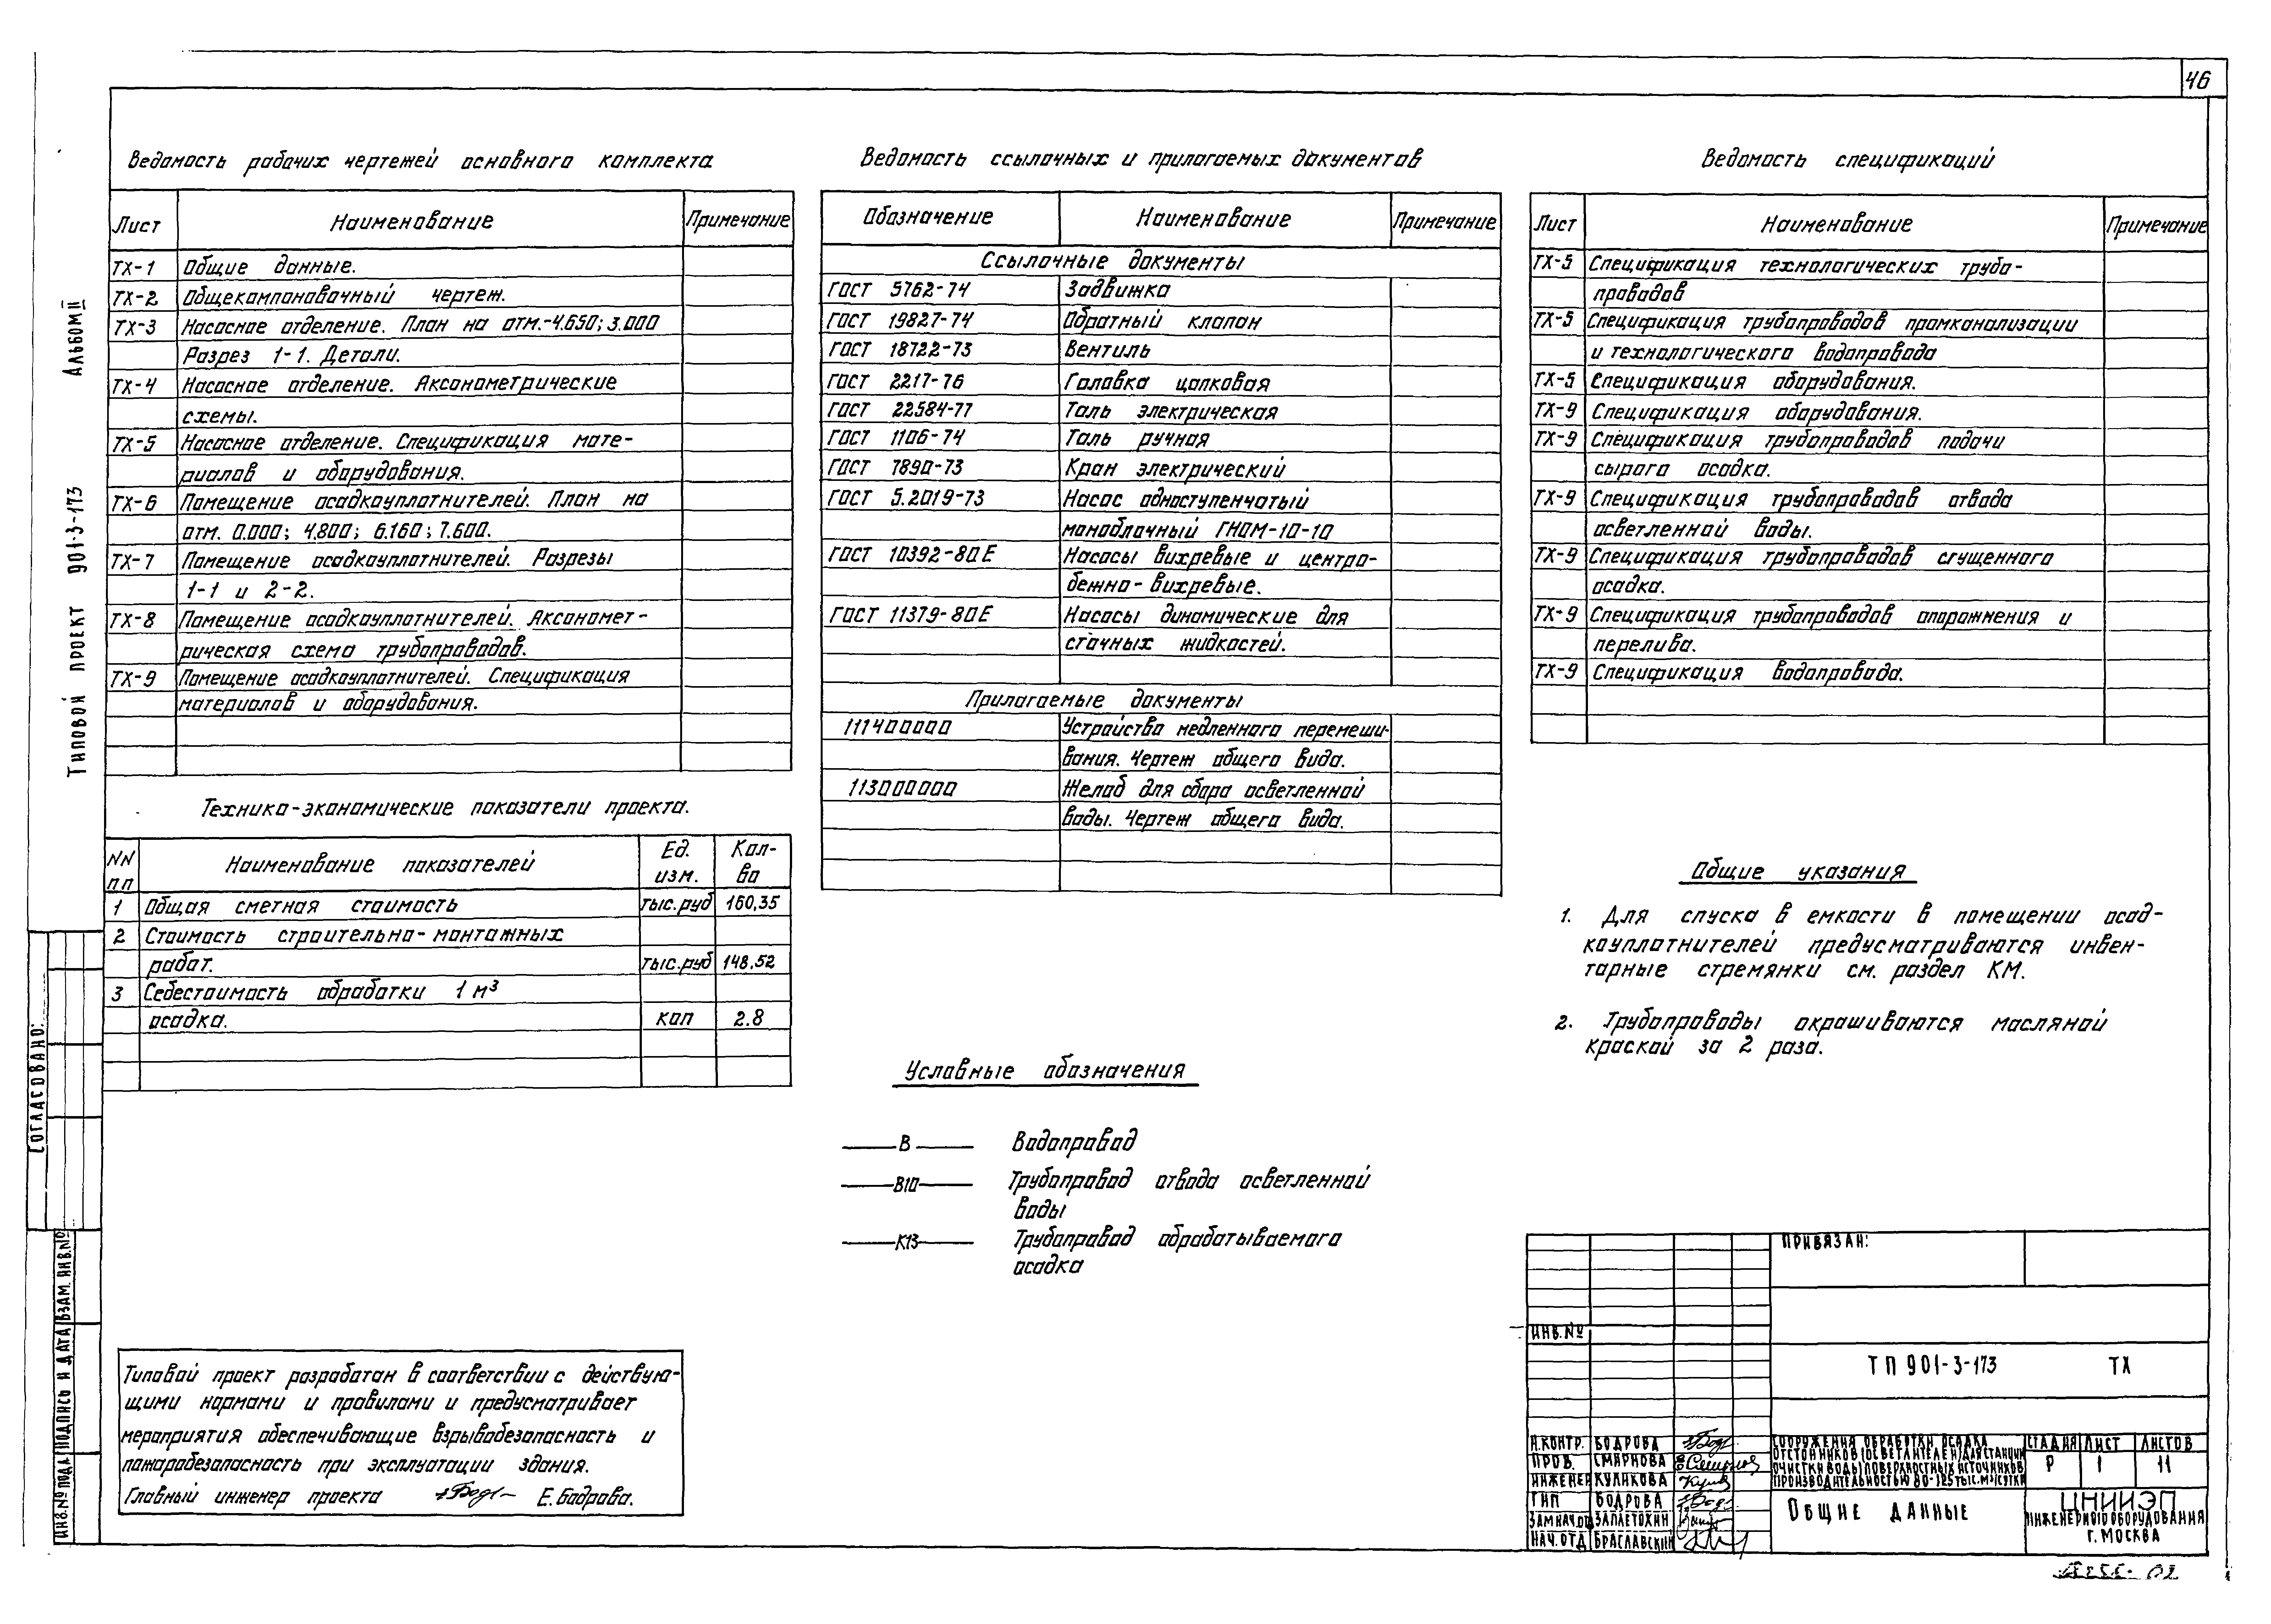 46
Альбом II
Типовой проект 901-3-173
Ведомость рабочих чертежей основного комплекта
Лист Наименование Примечание
ТХ-1 Общие данные.
ТХ-2 Общекомпоновочный чертеж.
ТХ-3 Насосное отделение. План на отм.-4.650; 3.000
Разрез 1-1. Детали.
ТХ-4 Насосное отделение. Аксонометрические
схемы.
ТХ-5 Насосное отделение. Спецификация мате-
риалов и оборудования.
ТХ-6 Помещение осадкоуплотнителей. План на
отм. 0.000; 4.800; 6.160; 7.600.
ТХ-7 Помещение осадкоуплотнителей. Разрезы
1-1 и 2-2.
ТХ-8 Помещение осадкоуплотнителей. Аксономет-
рическая схема трубопроводов.
ТХ-9 Помещение осадкоуплотнителей. Спецификация
материалов и оборудования.
Технико-экономические показатели проекта.
NN пп Наименование показателей Ед. изм. Кол-во
1 Общая сметная стоимость тыс.руб 160,35
2 Стоимость строительно-монтажных
работ. тыс.руб 148,52
3 Себестоимость обработки 1 м³
осадка. коп 2.8
Типовой проект разработан в соответствии с действую-
щими нормами и правилами и предусматривает
мероприятия обеспечивающие взрывобезопасность и
пожаробезопасность при эксплуатации здания.
Главный инженер проекта Е. Бодрова.
Ведомость ссылочных и прилагаемых документов
Обозначение Наименование Примечание
Ссылочные документы
ГОСТ 5762-74 Задвижка
ГОСТ 19827-74 Обратный клапан
ГОСТ 18722-73 Вентиль
ГОСТ 2217-76 Головка цапковая
ГОСТ 22584-77 Таль электрическая
ГОСТ 1106-74 Таль ручная
ГОСТ 7890-73 Кран электрический
ГОСТ 5.2019-73 Насос одноступенчатый
моноблочный ГНОМ-10-10
ГОСТ 10392-80Е Насосы вихревые и центро-
бежно-вихревые.
ГОСТ 11379-80Е Насосы динамические для
сточных жидкостей.
Прилагаемые документы
111400000 Устройство медленного перемеши-
вания. Чертеж общего вида.
113000000 Желоб для сбора осветленной
воды. Чертеж общего вида.
Условные обозначения
В Водопровод
В10 Трубопровод отвода осветленной
воды
К13 Трубопровод обрабатываемого
осадка
Ведомость спецификаций
Лист Наименование Примечание
ТХ-5 Спецификация технологических трубо-
проводов
ТХ-5 Спецификация трубопроводов промканализации
и технологического водопровода
ТХ-5 Спецификация оборудования.
ТХ-9 Спецификация оборудования.
ТХ-9 Спецификация трубопроводов подачи
сырого осадка.
ТХ-9 Спецификация трубопроводов отвода
осветленной воды.
ТХ-9 Спецификация трубопроводов сгущенного
осадка.
ТХ-9 Спецификация трубопроводов опорожнения и
перелива.
ТХ-9 Спецификация водопровода.
Общие указания
1. Для спуска в емкости в помещении осад-
коуплотнителей предусматриваются инвен-
тарные стремянки см. раздел КМ.
2. Трубопроводы окрашиваются масляной
краской за 2 раза.
Согласовано:
Инв.№ подл Подпись и дата Взам. инв.№
Привязан:
Инв.№
ТП 901-3-173 ТХ
Н.контр. Бодрова
Пров. Смирнова
Инженер Куликова
ГИП Бодрова
Зам нач.от Заплетохин
Нач.отд Браславский
Сооружения обработки осадка
отстойников (осветлителей) для станции
очистки воды поверхностных источников
производительностью 80-125 тыс.м³/сутки
Стадия Лист Листов
Р 1 11
Общие данные
ЦНИИЭП
инженерного оборудования
г. Москва